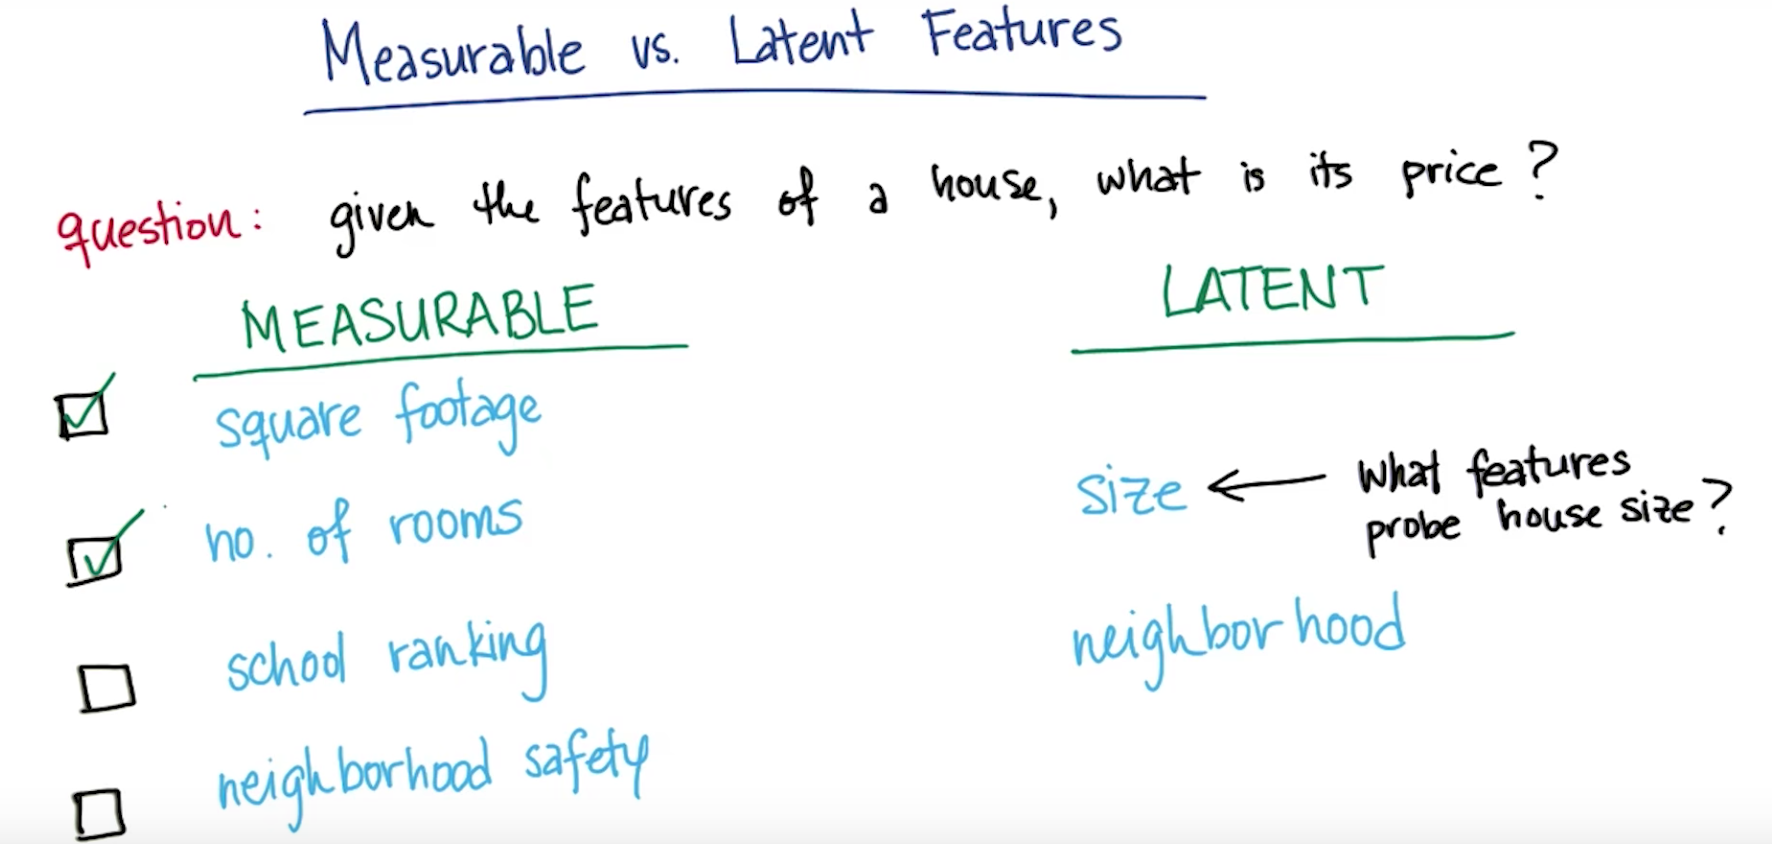 Measurable vs. Latent Features
question: given the features of a house, what is its price?
MEASURABLE
square footage
no. of rooms
school ranking
neighborhood safety
LATENT
size ← What features
probe house size?
neighborhood